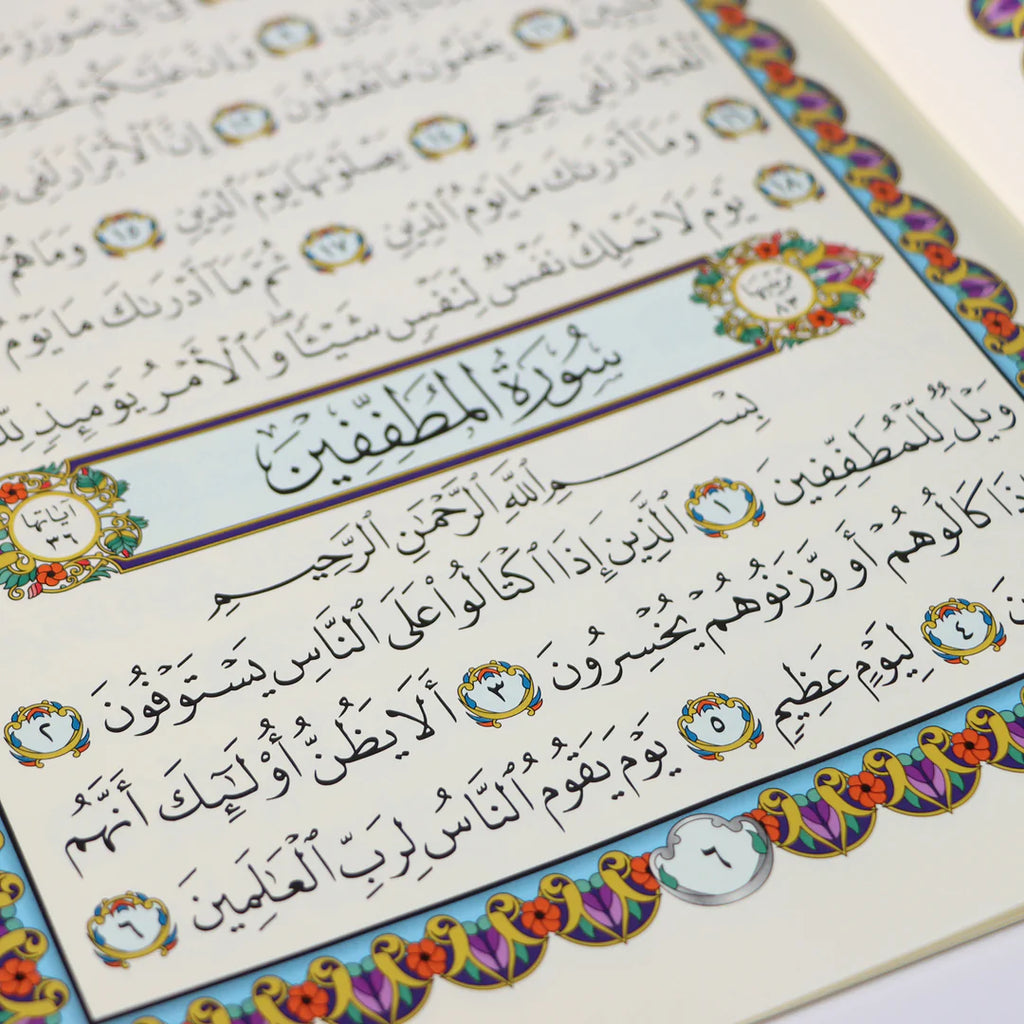 وَإِنَّ عَلَيْكُمْ
يَعْلَمُونَ مَا تَفْعَلُونَ ١٢ إِنَّ ٱلْأَبْرَارَ لَفِى
ٱلْفُجَّارَ لَفِى جَحِيمٍ ١٤ يَصْلَوْنَهَا يَوْمَ ٱلدِّينِ ١٥ وَمَا هُمْ
١٦ وَمَآ أَدْرَىٰكَ مَا يَوْمُ ٱلدِّينِ ١٧ ثُمَّ مَآ أَدْرَىٰكَ مَا يَوْمُ
١٨ يَوْمَ لَا تَمْلِكُ نَفْسٌ لِّنَفْسٍ شَيْـًٔا ۖ وَٱلْأَمْرُ يَوْمَئِذٍ لِّلَّهِ
سُورَةُ المُطَفِّفِينَ
اياتها ٣٦
بِسْمِ ٱللَّهِ ٱلرَّحْمَٰنِ ٱلرَّحِيمِ
وَيْلٌ لِّلْمُطَفِّفِينَ ١ ٱلَّذِينَ إِذَا ٱكْتَالُوا۟ عَلَى ٱلنَّاسِ يَسْتَوْفُونَ ٢
وَإِذَا كَالُوهُمْ أَو وَّزَنُوهُمْ يُخْسِرُونَ ٣ أَلَا يَظُنُّ أُو۟لَٰٓئِكَ أَنَّهُم
٤ لِيَوْمٍ عَظِيمٍ ٥ يَوْمَ يَقُومُ ٱلنَّاسُ لِرَبِّ ٱلْعَٰلَمِينَ ٦
٦